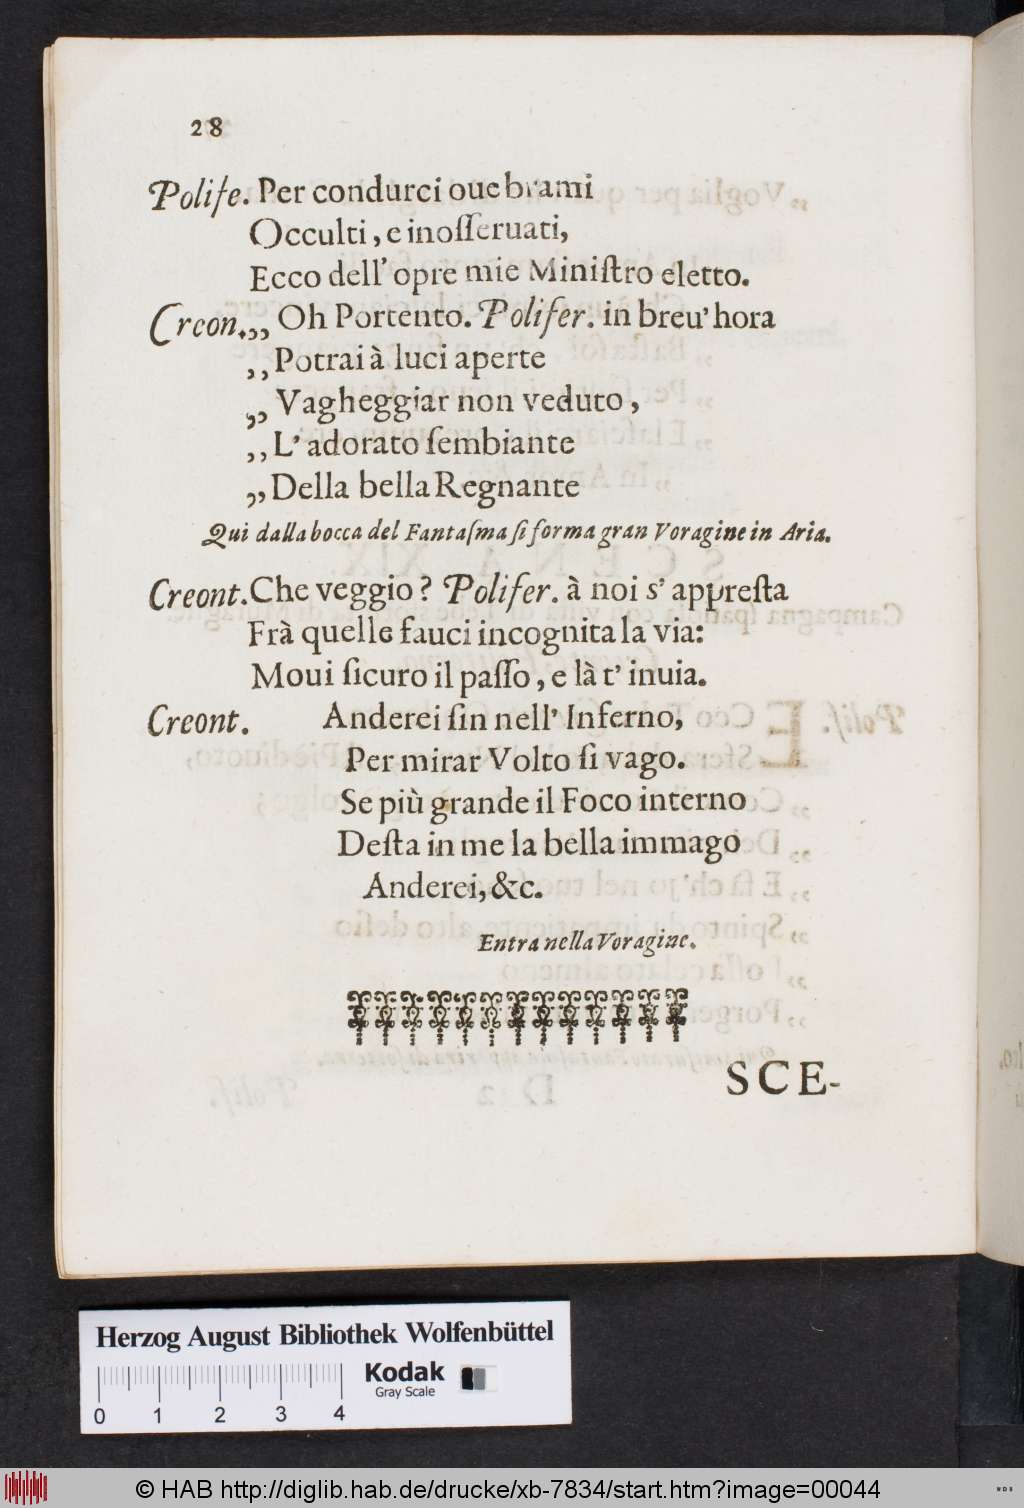 28
Polife. Per condurci oue brami
Occulti, e inoſſeruati,
Ecco dell' opre mie Miniſtro eletto.
Creon.,, Oh Portento. Polifer. in breu' hora
,, Potrai à luci aperte
,, Vagheggiar non veduto,
,, L' adorato ſembiante
,, Della bella Regnante
Qui dalla bocca del Fantaſma ſi forma gran Voragine in Aria.
Creont. Che veggio? Polifer. à noi s' appreſta
Frà quelle fauci incognita la via:
Moui ſicuro il paſſo, e là t' inuia.
Creont. Anderei ſin nell' Inferno,
Per mirar Volto ſi vago.
Se più grande il Foco interno
Deſta in me la bella immago
Anderei, &c.
Entra nella Voragine.
SCE-
Herzog August Bibliothek Wolfenbüttel
Kodak
Gray Scale
0 1 2 3 4
© HAB http://diglib.hab.de/drucke/xb-7834/start.htm?image=00044